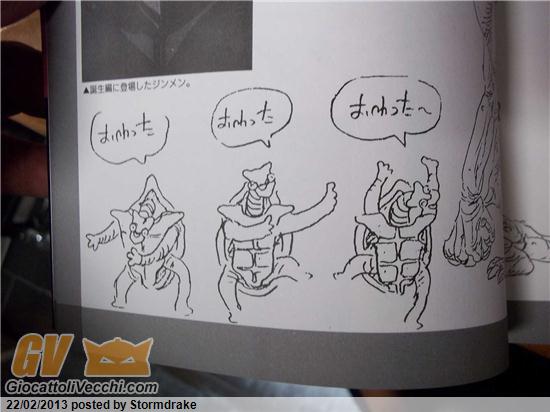 ▲誕生編に登場したジンメン。
おわった
おわった
おわった～
GV
GiocattoliVecchi.com
22/02/2013 posted by Stormdrake